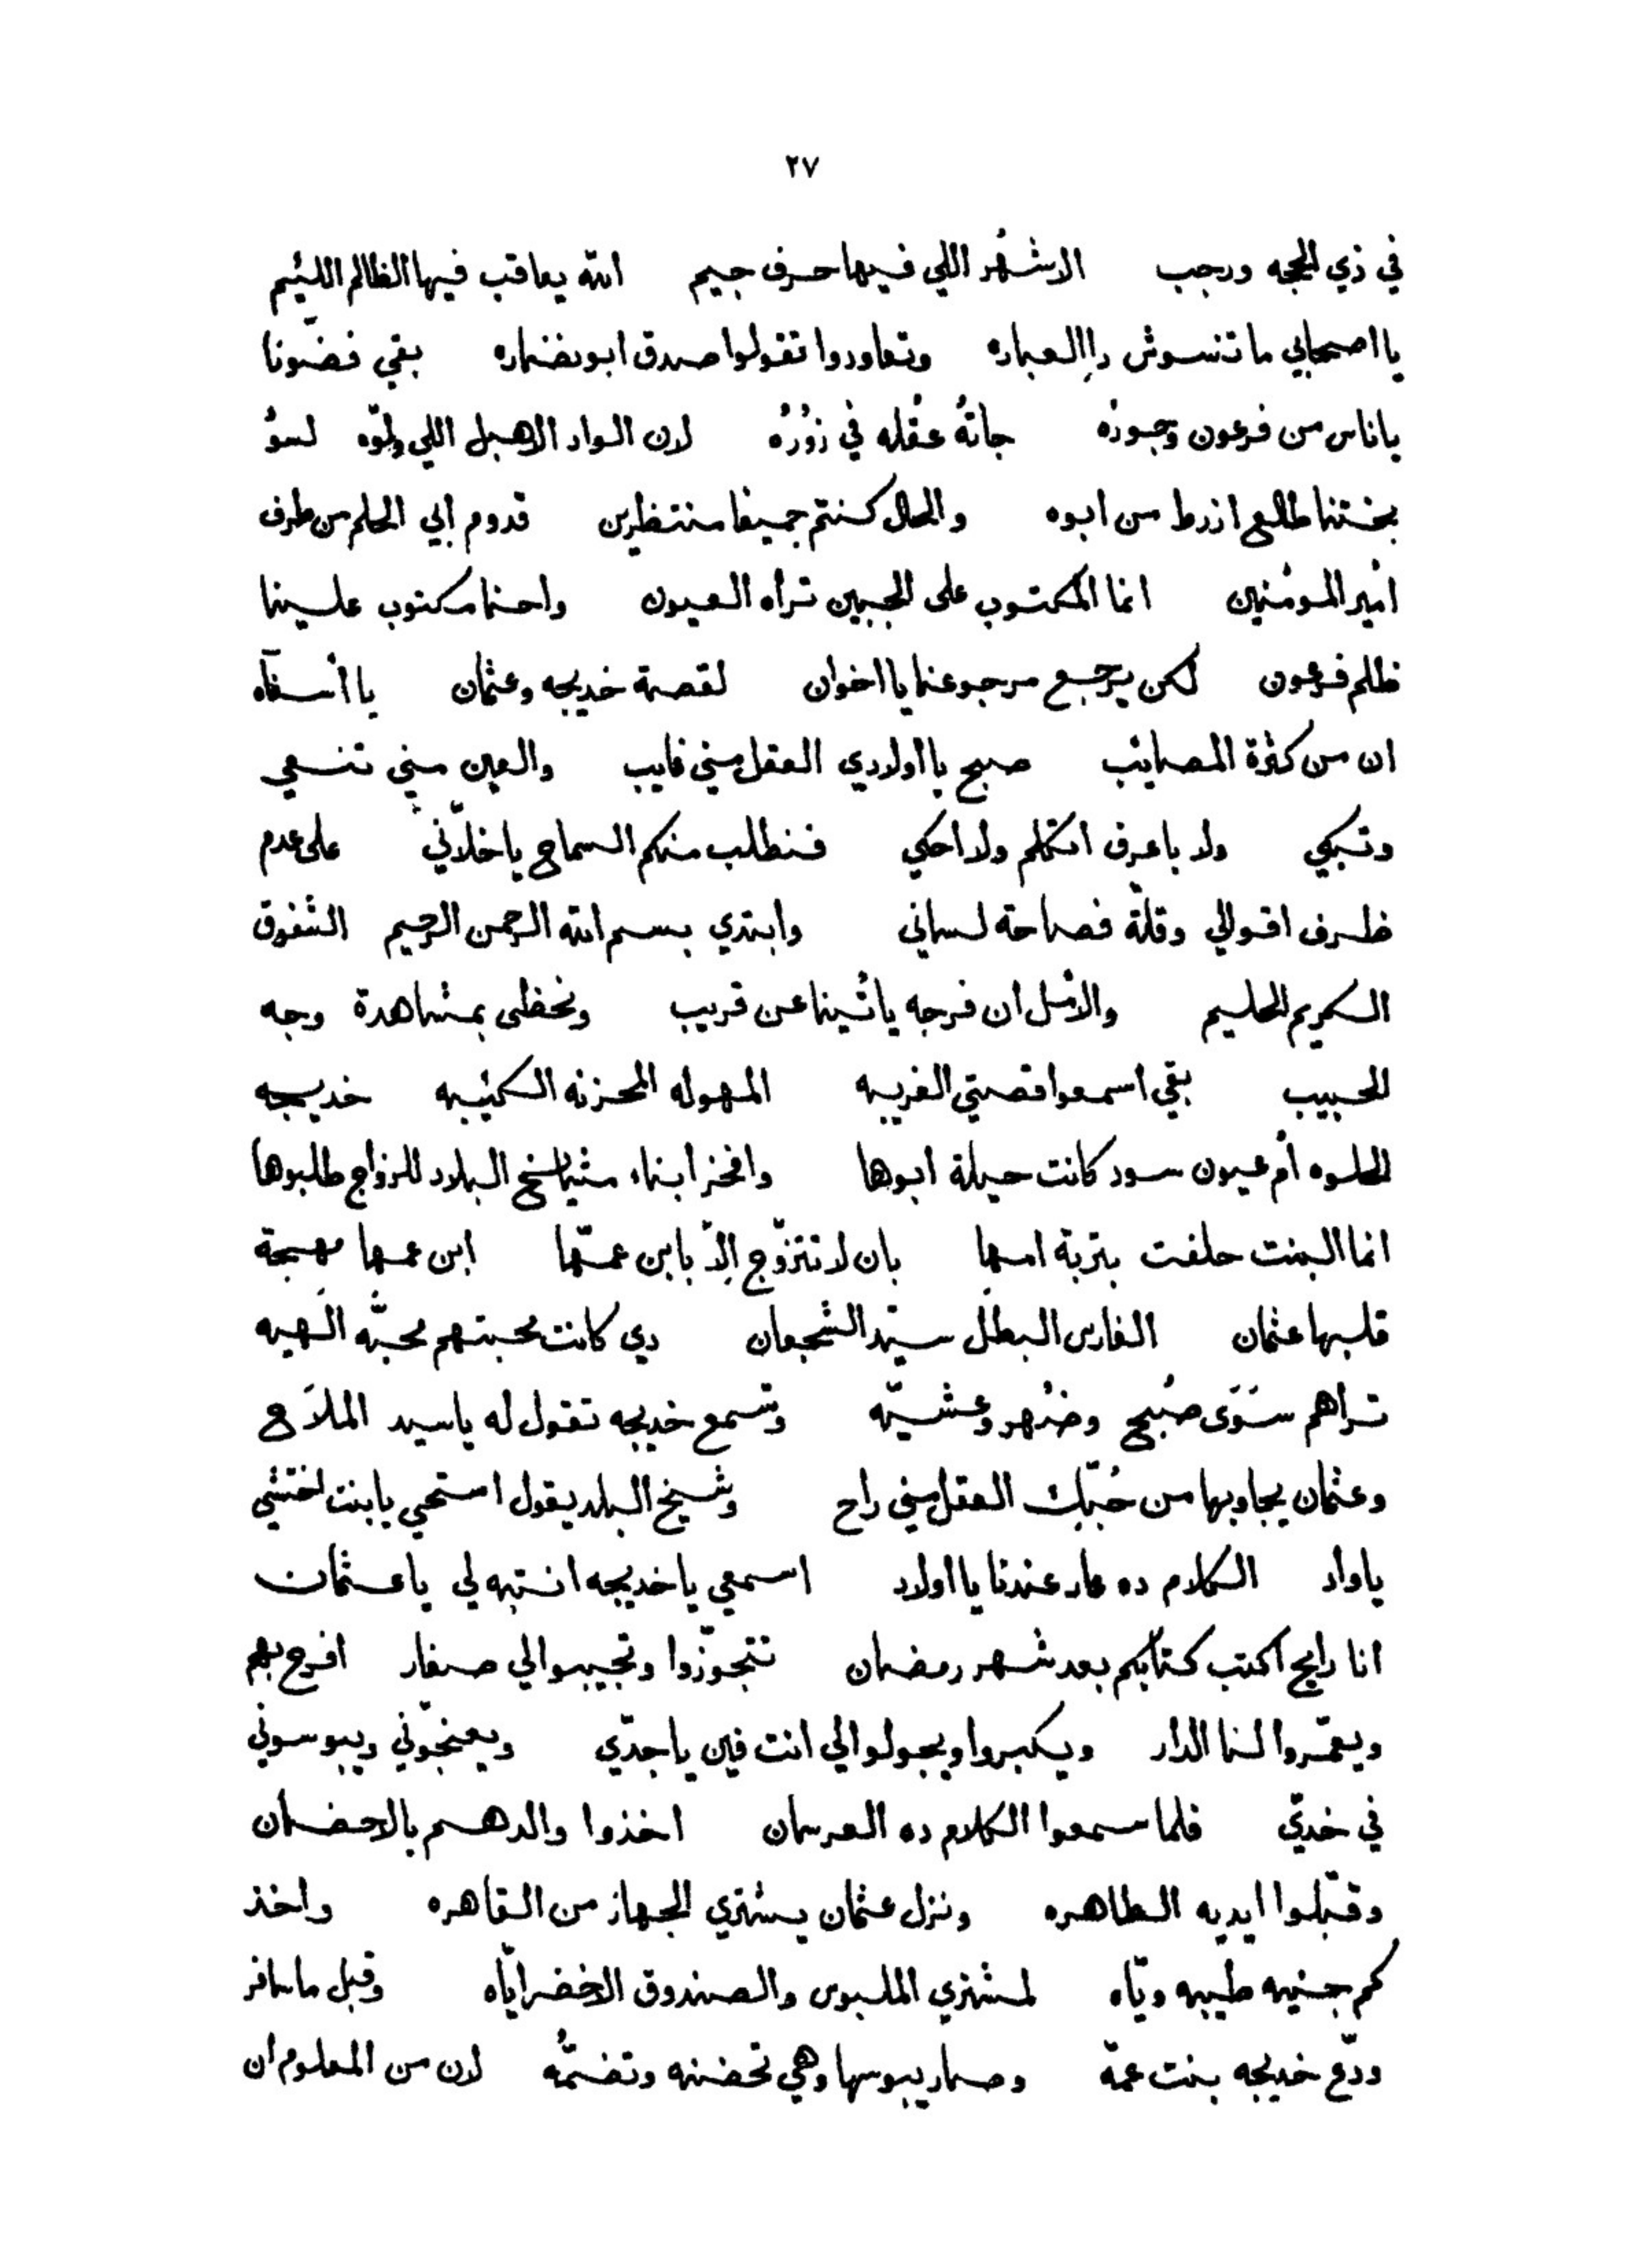 ٢٧
في ذي الحجه ورجب الاشهُر اللي فيها حرف جيم الله يعاقب فيها الظالم اللئيم
يا اصحابي ما تنسوش دا العباره وتعاودوا تقولوا صدق ابو نضاره بقي فضّونا
يا ناس من فرعون وجورُه جاتهُ عقله في زُورُه لان الواد الاهبل اللي ولّوه لسوُ
بختنا طالع ازرط من ابوه والحال كنتم جميعًا منتظرين قدوم ابي الحلم من طرف
أمير المومنين انما المكتوب على الجبين تراه العيون واحنا مكتوب علينا
ظلم فرعون لكن يرجع مرجوعنا يا اخوان لقصة خديجه وعثمان يا أسفاه
ان من كثرة المصائب صبح يا اولادي العقل مني غايب والعين مني تنعي
وتبكي ولا باعرف اتكلم ولا احكي فنطلب منكم السماح يا خلّاني على عدم
ظرف اقوالي وقلة فصاحة لساني وابتدي بسم الله الرحمن الرحيم الشفوق
الكريم الحليم والامل ان فرجه يأتينا عن قريب ونحظى بمشاهدة وجه
الحبيب بقي اسمعوا قصتي الغريبه المهوله المحزنه الكئيبه خديجه
الحلوه أم عيون سود كانت حيلة ابوها وافخر ابناء مشايخ البلاد للزواج طلبوها
انما البنت حلفت بتربة امها بان لا تتزوّج الّا بابن عمّها ابن عمها مهجة
قلبها عثمان الفارس البطل سيّد الشجعان دي كانت محبتهم محبّه الهيه
تراهم سَوَى صُبح وضُهر وعشيّه وتسمع خديجه تقول له يا سيد الملاَح
وعثمان يجاوبها من حُبّك العقل مني راح وشيخ البلد يقول استحي يا بنت اختشي
يا واد الكلام ده عار عندنا يا اولاد اسمعي يا خديجه انتبه لي يا عثمان
انا رايح اكتب كتابكم بعد شهر رمضان تتجوّزوا وتجيبوا لي صغار افرح بهم
ويعمّروا لنا الدار ويكبروا ويجولوا لي انت فين يا جدّي ويعنجّوني ويبوسوني
في خدّي فلما سمعوا الكلام ده العرسان اخذوا والدهم بالاحضان
وقبّلوا ايديه الطاهره ونزل عثمان يشتري الجهاز من القاهره واخذ
كم جنيه طيبه ويّاه لمشتري الملبوس والصندوق الاخضر ايّاه وقبل ما سافر
ودّع خديجه بنت عمّه وصار يبوسها وهي تحضنه وتضمّهُ لان من المعلوم ان